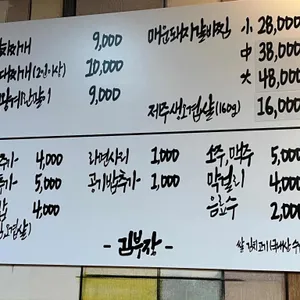 찌개 9,000
대찌개(2인이상) 10,000
9,000
매운돼지갈비찜 小 28,000
中 38,000
大 48,000
제주생오겹살(160g) 16,000
추가 4,000
추가 5,000
4,000
라면사리 1,000
공기밥추가 1,000
소주, 맥주 5,000
막걸리 4,000
음료수 2,000
- 김부장 -
쌀 김치 고기(국내산